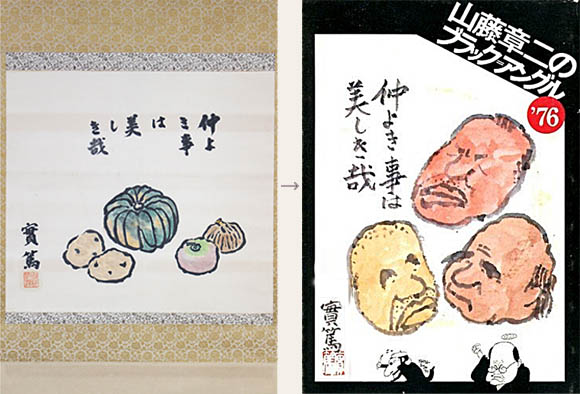 仲よ
き事
は
美
し
き哉
實篤
山藤章二の
ブラック=アングル
'76
仲よき事は
美しき哉
實篤